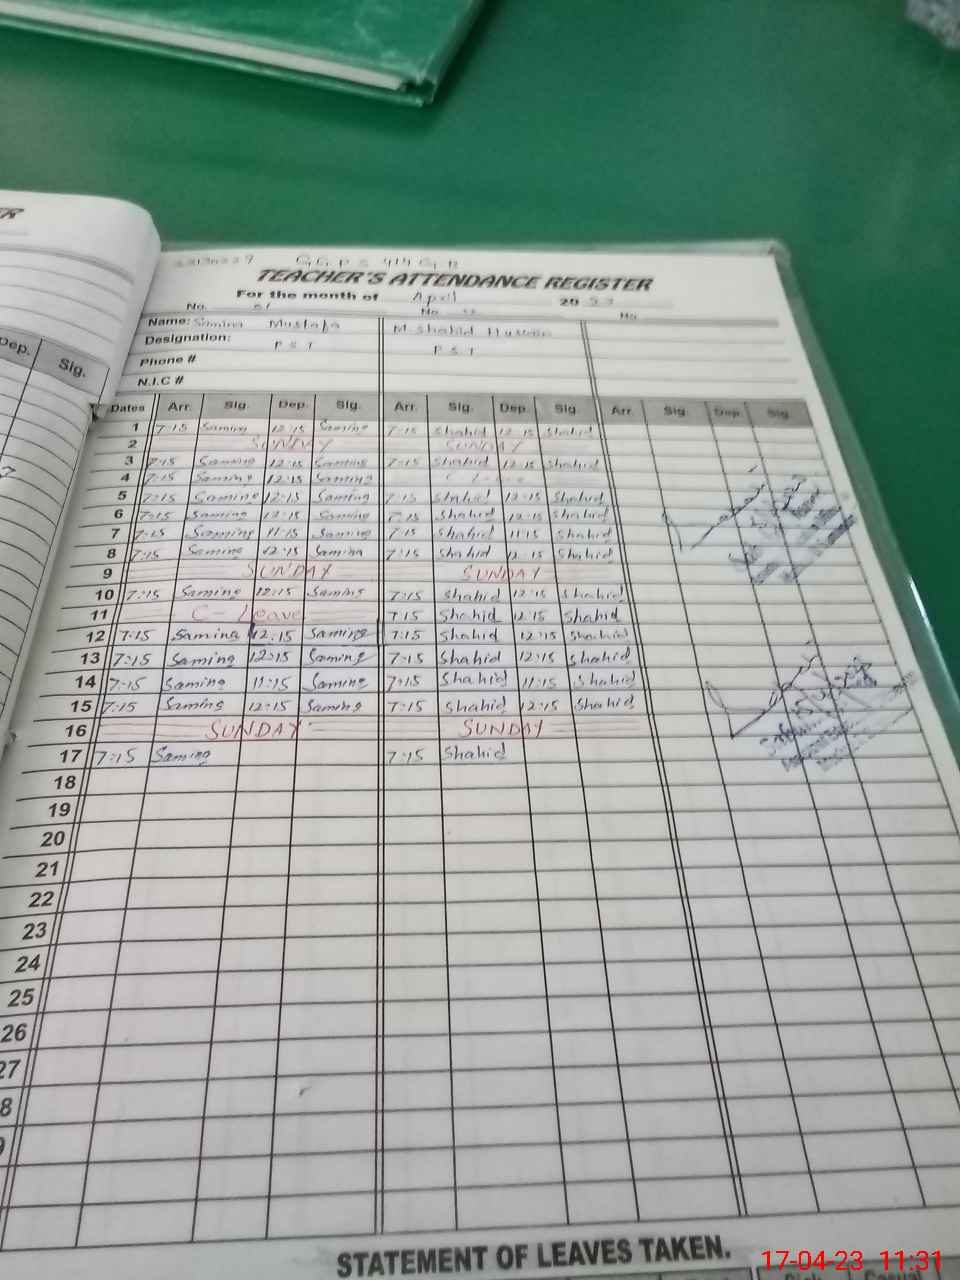 TEACHER'S ATTENDANCE REGISTER
For the month of April 20 23
No. 01 No No
Name: Samina Mustafa M. Shahid Hussain
Designation: P S T P S T
Phone #
N.I.C #
Dep. Sig.
Dates Arr. Sig. Dep. Sig. Arr. Sig. Dep. Sig. Arr. Sig. Dep. Sig.
1 7:15 Samina 12:15 Samina 7:15 Shahid 12:15 Shahid
2 SUNDAY SUNDAY
3 7:15 Samina 12:15 Samina 7:15 Shahid 12:15 Shahid
4 7:15 Samina 12:15 Samina
5 7:15 Samina 12:15 Samina 7:15 Shahid 12:15 Shahid
6 7:15 Samina 12:15 Samina 7:15 Shahid 12:15 Shahid
7 7:15 Samina 11:15 Samina 7:15 Shahid 11:15 Shahid
8 7:15 Samina 12:15 Samina 7:15 Shahid 12:15 Shahid
9 SUNDAY SUNDAY
10 7:15 Samina 12:15 Samina 7:15 Shahid 12:15 Shahid
11 C- Leave 7:15 Shahid 12:15 Shahid
12 7:15 Samina 12:15 Samina 7:15 Shahid 12:15 Shahid
13 7:15 Samina 12:15 Samina 7:15 Shahid 12:15 Shahid
14 7:15 Samina 11:15 Samina 7:15 Shahid 11:15 Shahid
15 7:15 Samina 12:15 Samina 7:15 Shahid 12:15 Shahid
16 SUNDAY SUNDAY
17 7:15 Samina 7:15 Shahid
18
19
20
21
22
23
24
25
26
27
8
9
STATEMENT OF LEAVES TAKEN.
17-04-23 11:31